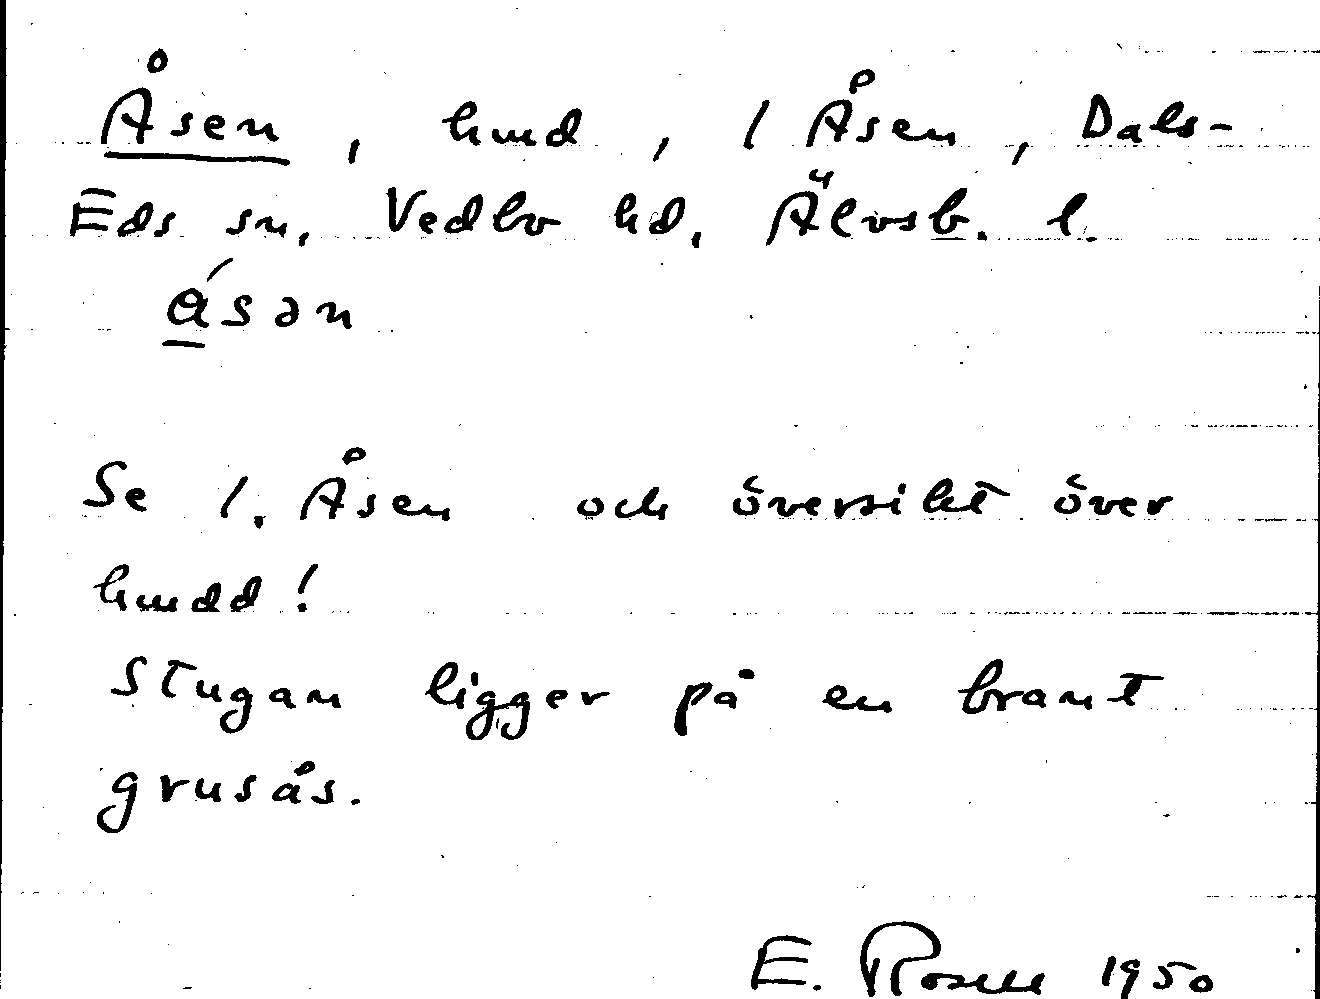 Åsen, hmd, 1 Åsen, Dals-
Eds sn. Vedbo hd. Älvsb. l.
ǻsən
Se 1. Åsen och översikt över
hmdd!
Stugan ligger på en brant
grusås.
E. Rosell 1950